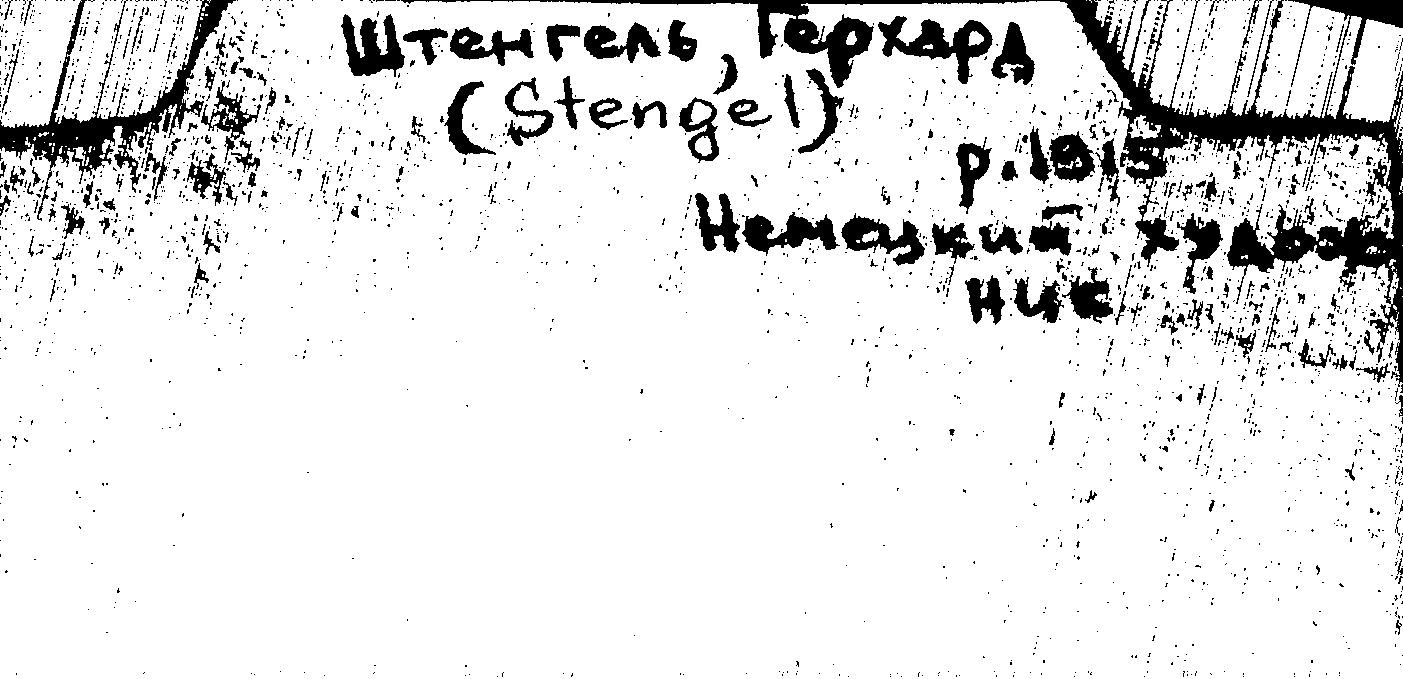 Штенгель, Герхард
(Stengel)
р. 1915
Немецкий худож
ник